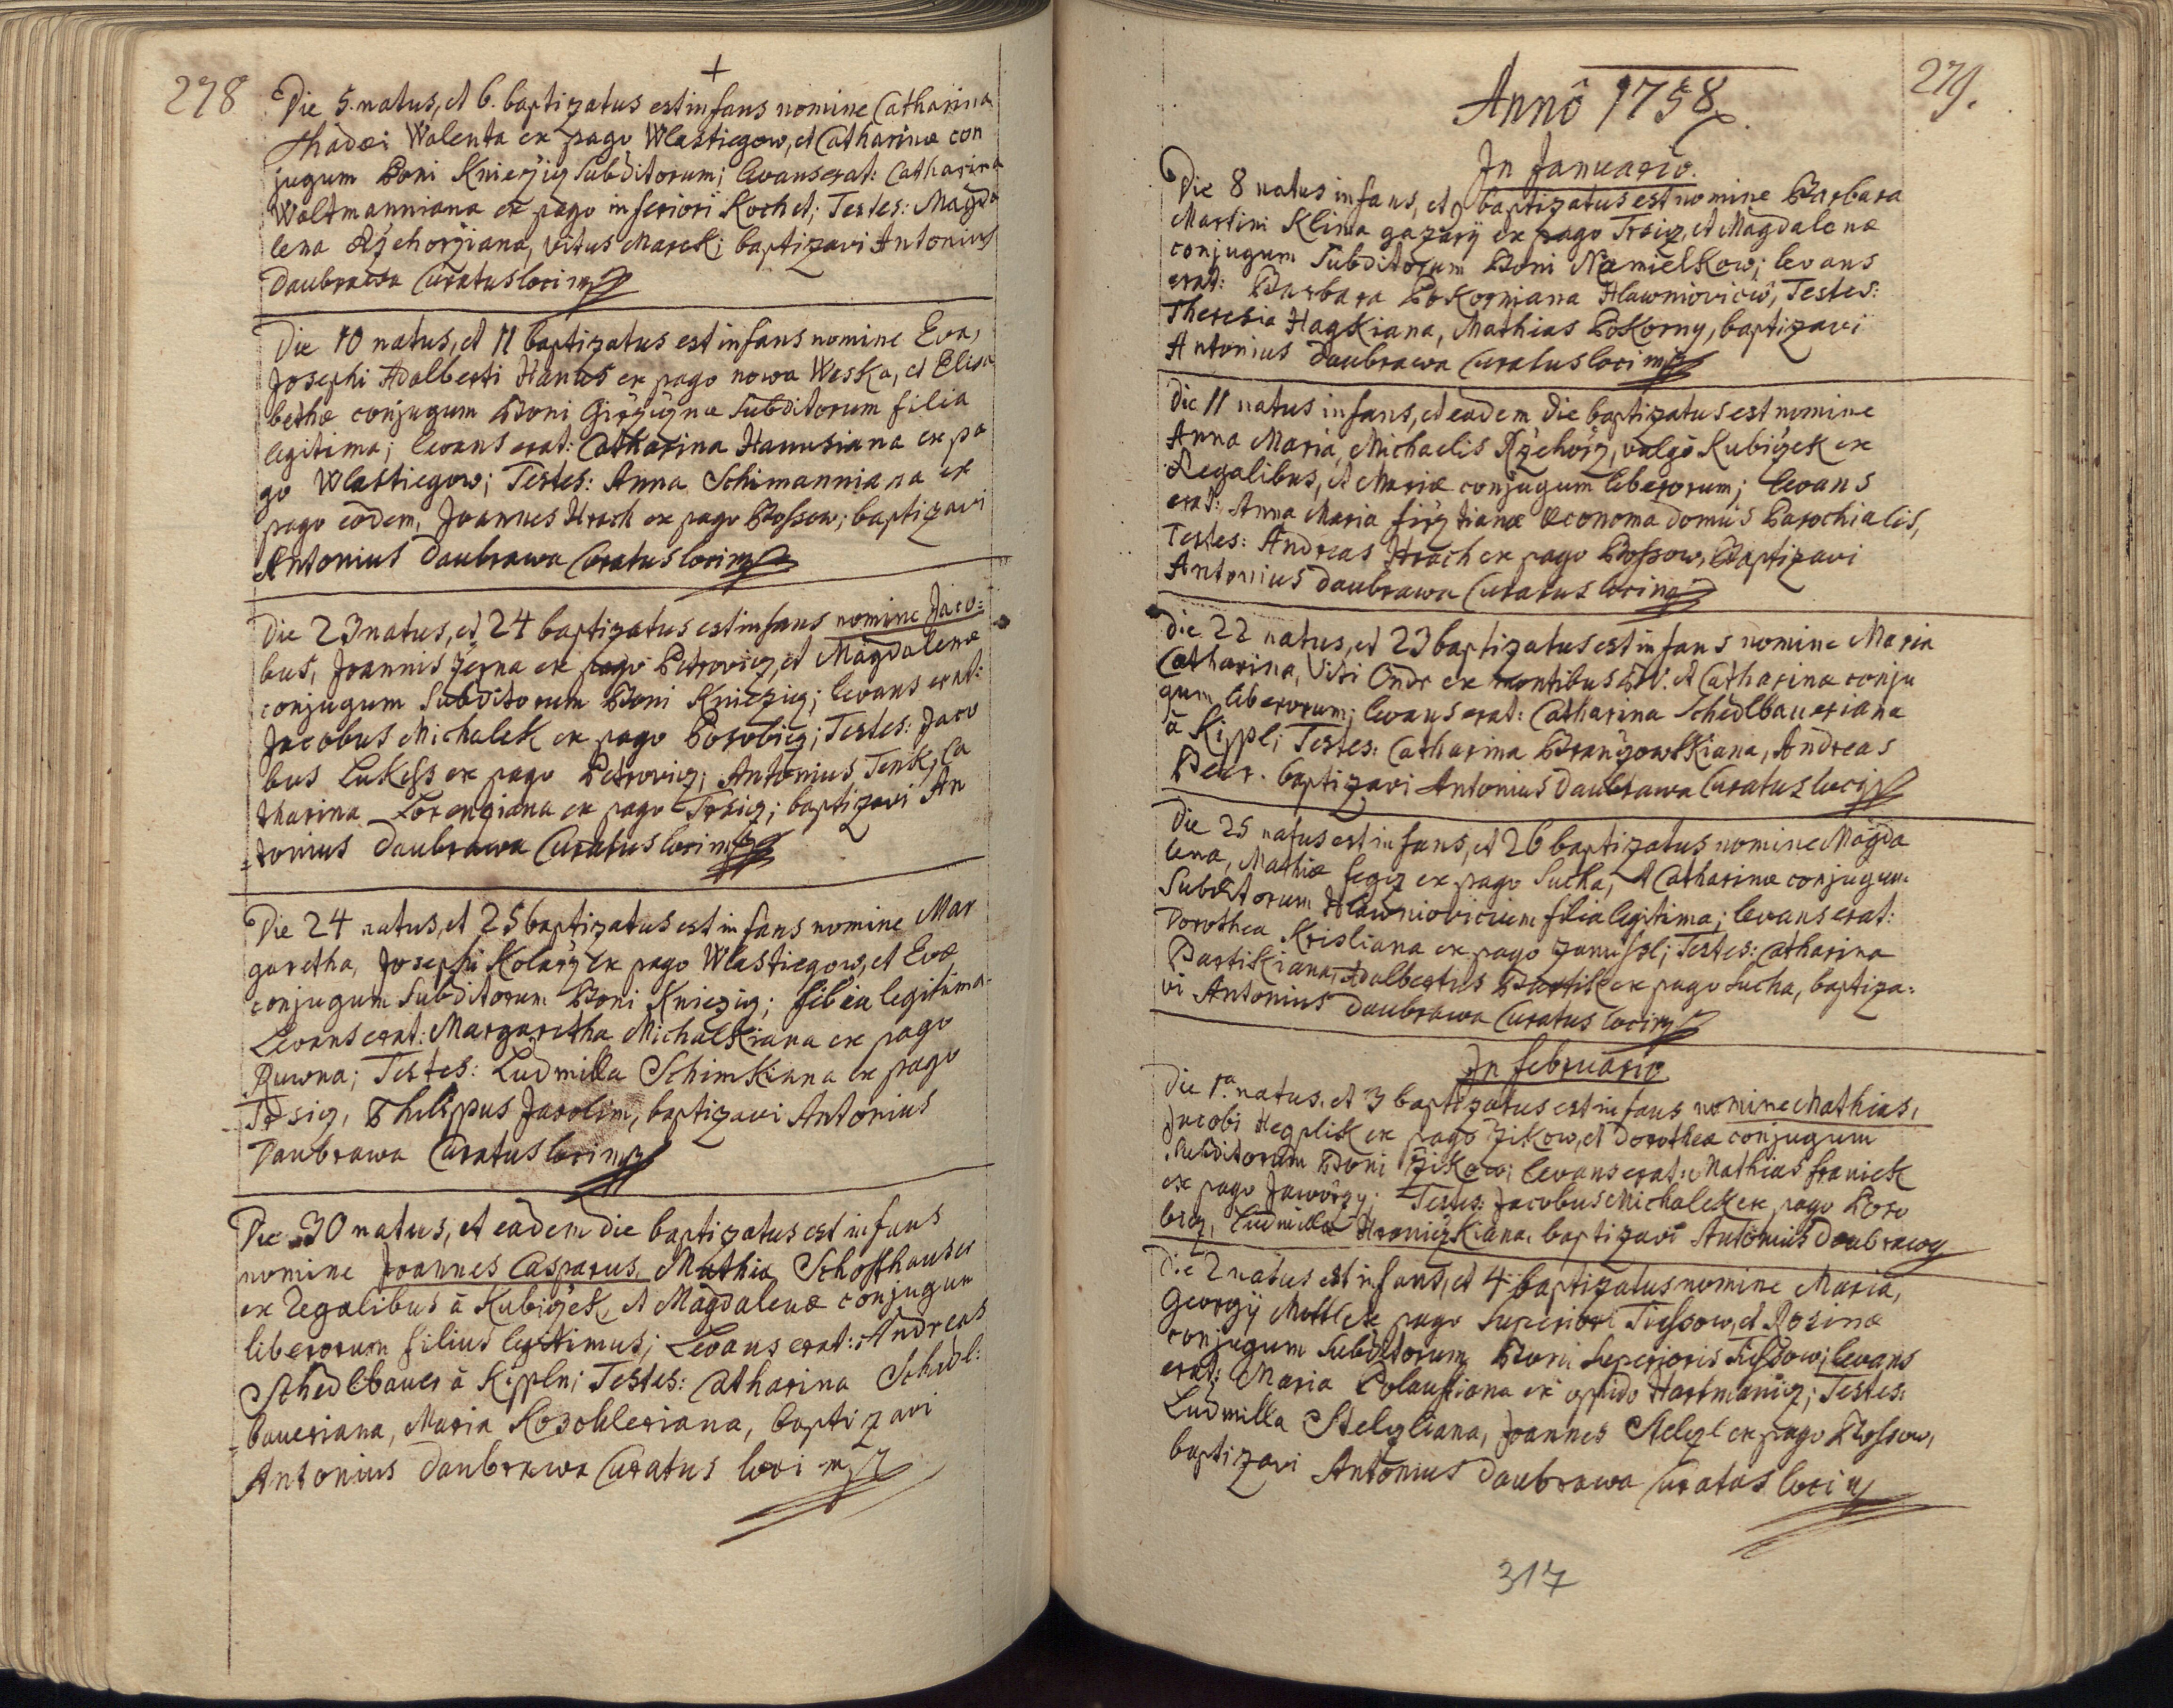 278
+
Die 5. natus, et 6. baptizatus est infans nomine Catharina
Thadæi Walenta ex pago Wlastiegow, et Catharinæ con
jugum Boni Kniezicz Subditorum; levans erat: Catharina
Waltmanniana ex pago inferiori Kochet; Testes: Magda
lena Rzehorziana, Vitus Marek; baptizavi Antonius
Daubrawa Curatus loci
Die 10 natus, et 11 baptizatus est infans nomine Eva,
Josephi Adalberti Hanus ex pago nowa Weska, et Elisa
bethæ conjugum Boni Subditorum filia
legitima; levans erat: Catharina Hanusiana ex pa
go Wlastiegow; Testes: Anna Schimanniana ex
pago eodem, Joannes Hrach ex pago Bossow; baptizavi
Antonius Daubrawa Curatus loci
Die 23 natus, et 24 baptizatus est infans nomine Jaco=
bus, Joannis Zerna ex pago Petrowicz, et Magdalenæ
conjugum Subditorum Boni Kniezicz; levans erat:
Jacobus Michalek ex pago Borobicz; Testes: Jaco
bus Lukess ex pago Petrovicz, Antonius Tenk, Ca
tharina Lorenziana ex pago Trsicz; baptizavi An
=tonius Daubrawa Curatus loci
Die 24 natus, et 25 baptizatus est infans nomine Mar
garetha, Josephi Kolarz ex pago Wlastiegow, et Evæ
conjugum Subditorum Boni Kniezicz; filia legitima.
Levans erat: Margaretha Michalkiana ex pago
Ruwna; Testes: Ludmilla Schimkiana ex pago
Trsicz, Philippus Jarolim, baptizavi Antonius
Daubrawa Curatus loci
Die 30 natus, et eadem die baptizatus est infans
nomine Joannes Casparus, Mathiæ Schosthauser
ex Regalibus à Kubiczek, et Magdalenæ conjugum
liberorum filius legitimus; Levans erat: Andreas
Schedlbauer à Kippln; Testes: Catharina Schedl:
=baueriana, Maria Koschleriana, baptizavi
Antonius Daubrawa Curatus loci
279.
Annô 1758
In Januario.
Die 8 natus infans, et 9 baptizatus est nomine Barbara
Martini Klima gazarÿ ex pago Trsicz, et Magdalenæ
conjugum Subditorum Boni Namielkow; levans
erat: Barbara Pokorniana Hlawniovicio, Testes:
Theresia Hagkiana, Mathias Pokorny, baptizavi
Antonius Daubrawa Curatus loci
Die 11 natus infans, et eadem die baptizatus est nomine
Anna Maria, Michaelis Rzehorz, vulgô Kubiczek ex
Regalibus, et Mariæ conjugum liberorum; levans
erat: Anna Maria œconoma domûs Parochialis,
Testes: Andreas Hrach ex pago Bossow, Baptizavi
Antonius Daubrawa Curatus loci
Die 22 natus, et 23 baptizatus est infans nomine Maria
Catharina, Viti Ondr ex montibus et Catharinæ conju
gum liberorum; levans erat: Catharina Schedlbaueriana
à Kippl; Testes: Catharina Branzowskiana, Andreas
Baur. baptizavi Antonius Daubrawa Curatus loci
Die 25 natus est infans, et 26 baptizatus nomine Magda
lena, Mathiæ ex pago Sucha, et Catharinæ conjugum
Subditorum Hlawniovicium filia legitima; levans erat:
Dorothea Krisliana ex pago Zamissl; Testes: Catharina
Bartikiana, Adalbertus Bartik ex pago Sucha, baptiza=
vi Antonius Daubrawa Curatus loci
In februario
Die 1.ª natus, et 3 baptizatus est infans nomine Mathias,
Jacobi Hegplik ex pago Zikow, et Dorothea conjugum
Subditorum Boni Zikow; levans erat: Mathias franiek
ex pago Jaworzy; Testes: Jacobus Michalek ex pago Boro
bicz, Ludmilla Hroniczkiana. baptizavi Antonius Daubrawa
Die 2 natus est infans, et 4 baptizatus nomine Maria,
Georgÿ Mottl ex pago Superiori Tiessow, et Rosinæ
conjugum Subditorum Boni Superioris Tiessow; levans
erat: Maria Polaufiana ex oppido Hartmanicz; Testes:
Ludmilla Stelzliana, Joannes Stelzl ex pago Bossow,
baptizavi Antonius Daubrawa Curatus loci
317